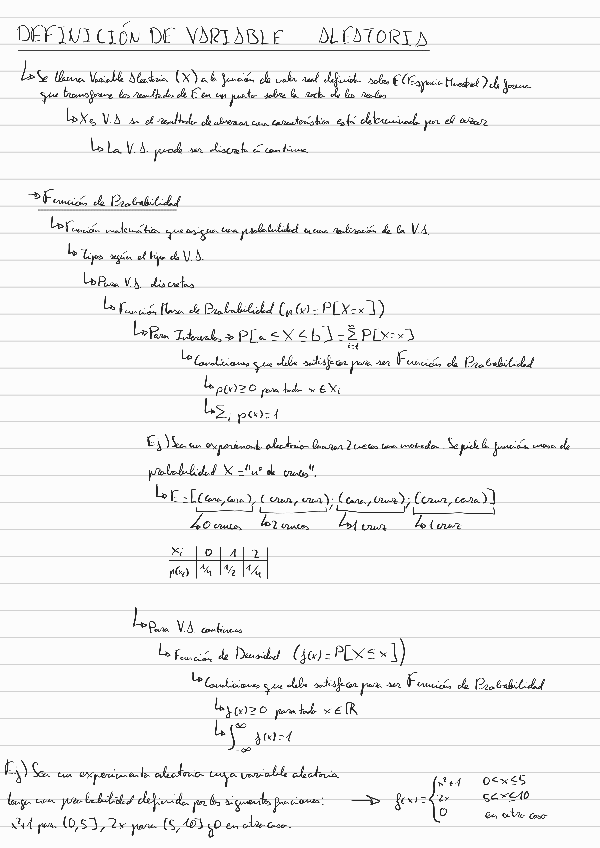 DEFINICIÓN DE VARIABLE ALEATORIA
↳ Se llama Variable Aleatoria (X) a la función de valor real definida sobre E (Espacio Muestral) de forma
que transforme los resultados de E en un punto sobre la recta de los reales
↳ X es V.A si el resultado de observar una característica está determinada por el azar
↳ La V.A. puede ser discreta ó continua
→ Función de Probabilidad
↳ Función matemática que asigna una probabilidad a una realización de la V.A.
↳ Tipos según el tipo de V.A.
↳ Para V.A. discretas
↳ Función Masa de Probabilidad (p(x) = P[X=x])
↳ Para Intervalos → P[a ≤ X ≤ b] = ∑ P[X=x]
↳ Condiciones que debe satisfacer para ser Función de Probabilidad
↳ p(x) ≥ 0 para todo x ∈ Xi
↳ ∑i p(x) = 1
Ej) Sea un experimento aleatorio lanzar 2 veces una moneda. Se pide la función masa de
probabilidad X = "nº de cruces".
↳ E = [(cara, cara), (cruz, cruz); (cara, cruz); (cruz, cara)]
↳ 0 cruces ↳ 2 cruces ↳ 1 cruz ↳ 1 cruz
Xi | 0 | 1 | 2
p(xi) | 1/4 | 1/2 | 1/4
↳ Para V.A continuas
↳ Función de Densidad (f(x) = P[X ≤ x])
↳ Condiciones que debe satisfacer para ser Función de Probabilidad
↳ f(x) ≥ 0 para todo x ∈ ℝ
↳ ∫_{-∞}^{∞} f(x) = 1
Ej) Sea un experimento aleatorio cuya variable aleatoria
tenga una probabilidad definida por las siguientes funciones:
x²+1 para (0,5], 2x para (5,10] y 0 en otro caso.
→ f(x) = { x²+1 0<x≤5
2x 5<x≤10
0 en otro caso